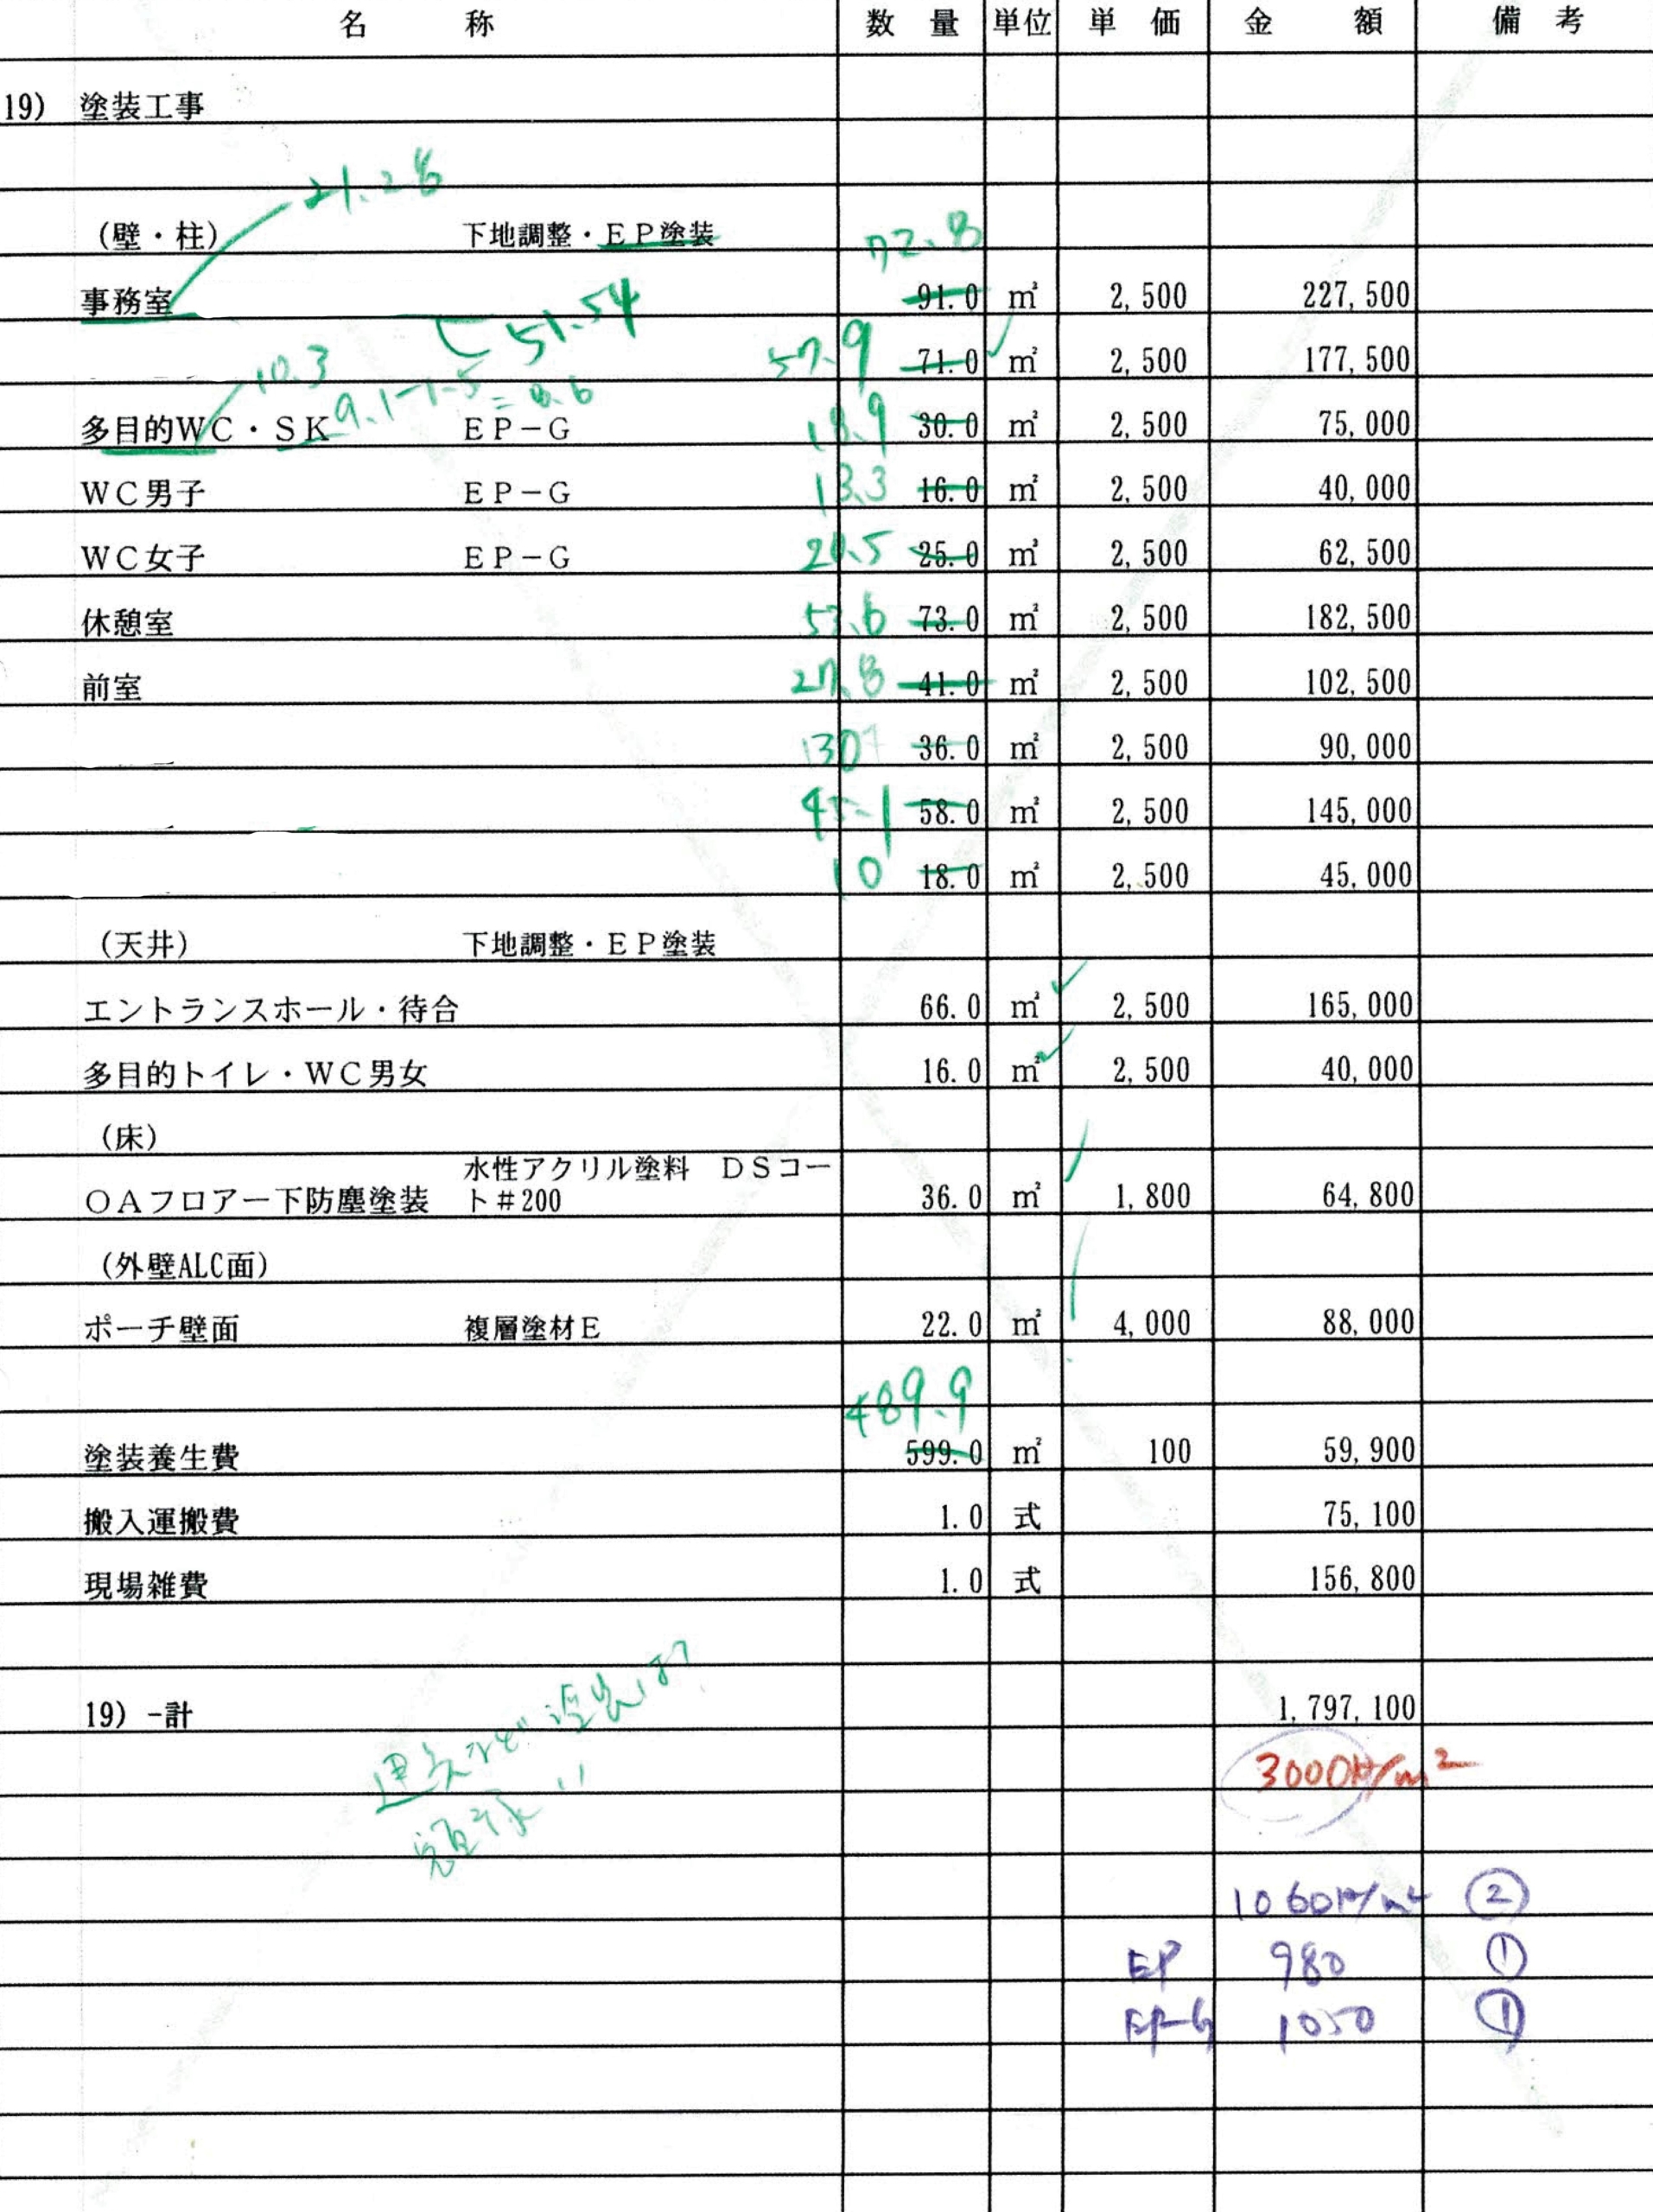 名 称 数 量 単位 単 価 金 額 備 考
19) 塗装工事
21.28
(壁・柱) 下地調整・EP塗装 72.8
事務室 91.0 ㎡ 2,500 227,500
51.54
57.9 71.0 ㎡ 2,500 177,500
10.3
9.1-1.5=8.6
多目的WC・SK EP-G 18.9 30.0 ㎡ 2,500 75,000
WC男子 EP-G 13.3 16.0 ㎡ 2,500 40,000
WC女子 EP-G 20.5 25.0 ㎡ 2,500 62,500
休憩室 73.0 ㎡ 2,500 182,500
前室 27.8 41.0 ㎡ 2,500 102,500
36.0 ㎡ 2,500 90,000
58.0 ㎡ 2,500 145,000
10 18.0 ㎡ 2,500 45,000
(天井) 下地調整・EP塗装
エントランスホール・待合 66.0 ㎡ 2,500 165,000
多目的トイレ・WC男女 16.0 ㎡ 2,500 40,000
(床)
水性アクリル塗料 DSコー
OAフロアー下防塵塗装 ト#200 36.0 ㎡ 1,800 64,800
(外壁ALC面)
ポーチ壁面 複層塗材E 22.0 ㎡ 4,000 88,000
489.9
塗装養生費 599.0 ㎡ 100 59,900
搬入運搬費 1.0 式 75,100
現場雑費 1.0 式 156,800
19)-計 1,797,100
3000円/m2
1060円/m2 ②
EP 980 ①
EP-G 1050 ①